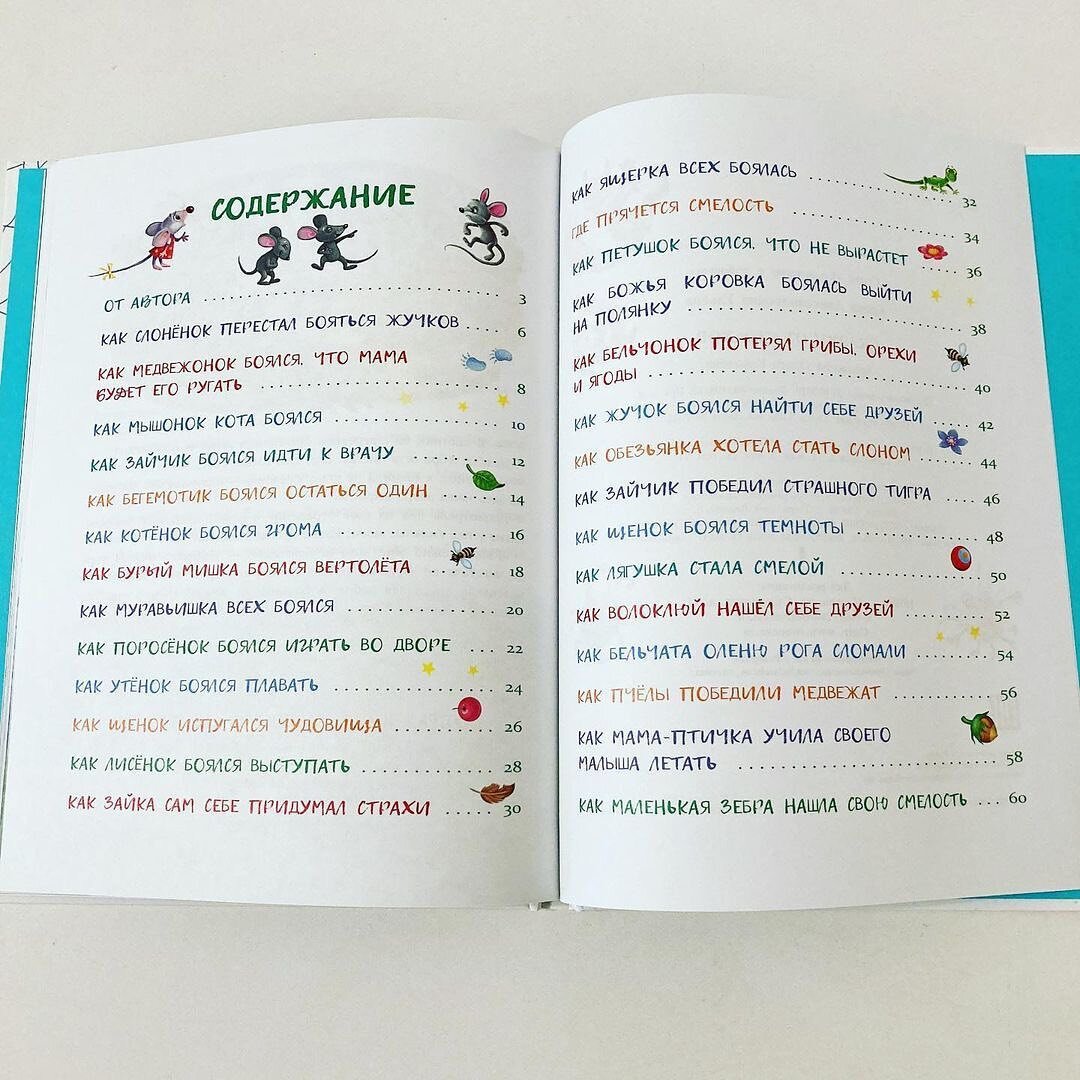 СОДЕРЖАНИЕ
ОТ АВТОРА 3
КАК СЛОНЁНОК ПЕРЕСТАЛ БОЯТЬСЯ ЖУЧКОВ 6
КАК МЕДВЕЖОНОК БОЯЛСЯ, ЧТО МАМА
БУДЕТ ЕГО РУГАТЬ 8
КАК МЫШОНОК КОТА БОЯЛСЯ 10
КАК ЗАЙЧИК БОЯЛСЯ ИДТИ К ВРАЧУ 12
КАК БЕГЕМОТИК БОЯЛСЯ ОСТАТЬСЯ ОДИН 14
КАК КОТЁНОК БОЯЛСЯ ГРОМА 16
КАК БУРЫЙ МИШКА БОЯЛСЯ ВЕРТОЛЁТА 18
КАК МУРАВЬИШКА ВСЕХ БОЯЛСЯ 20
КАК ПОРОСЁНОК БОЯЛСЯ ИГРАТЬ ВО ДВОРЕ 22
КАК УТЁНОК БОЯЛСЯ ПЛАВАТЬ 24
КАК ЩЕНОК ИСПУГАЛСЯ ЧУДОВИЩА 26
КАК ЛИСЁНОК БОЯЛСЯ ВЫСТУПАТЬ 28
КАК ЗАЙКА САМ СЕБЕ ПРИДУМАЛ СТРАХИ 30
КАК ЯЩЕРКА ВСЕХ БОЯЛАСЬ 32
ГДЕ ПРЯЧЕТСЯ СМЕЛОСТЬ 34
КАК ПЕТУШОК БОЯЛСЯ, ЧТО НЕ ВЫРАСТЕТ 36
КАК БОЖЬЯ КОРОВКА БОЯЛАСЬ ВЫЙТИ
НА ПОЛЯНКУ 38
КАК БЕЛЬЧОНОК ПОТЕРЯЛ ГРИБЫ, ОРЕХИ
И ЯГОДЫ 40
КАК ЖУЧОК БОЯЛСЯ НАЙТИ СЕБЕ ДРУЗЕЙ 42
КАК ОБЕЗЬЯНКА ХОТЕЛА СТАТЬ СЛОНОМ 44
КАК ЗАЙЧИК ПОБЕДИЛ СТРАШНОГО ТИГРА 46
КАК ЩЕНОК БОЯЛСЯ ТЕМНОТЫ 48
КАК ЛЯГУШКА СТАЛА СМЕЛОЙ 50
КАК ВОЛОКЛЮЙ НАШЁЛ СЕБЕ ДРУЗЕЙ 52
КАК БЕЛЬЧАТА ОЛЕНЮ РОГА СЛОМАЛИ 54
КАК ПЧЁЛЫ ПОБЕДИЛИ МЕДВЕЖАТ 56
КАК МАМА-ПТИЧКА УЧИЛА СВОЕГО
МАЛЫША ЛЕТАТЬ 58
КАК МАЛЕНЬКАЯ ЗЕБРА НАШЛА СВОЮ СМЕЛОСТЬ 60